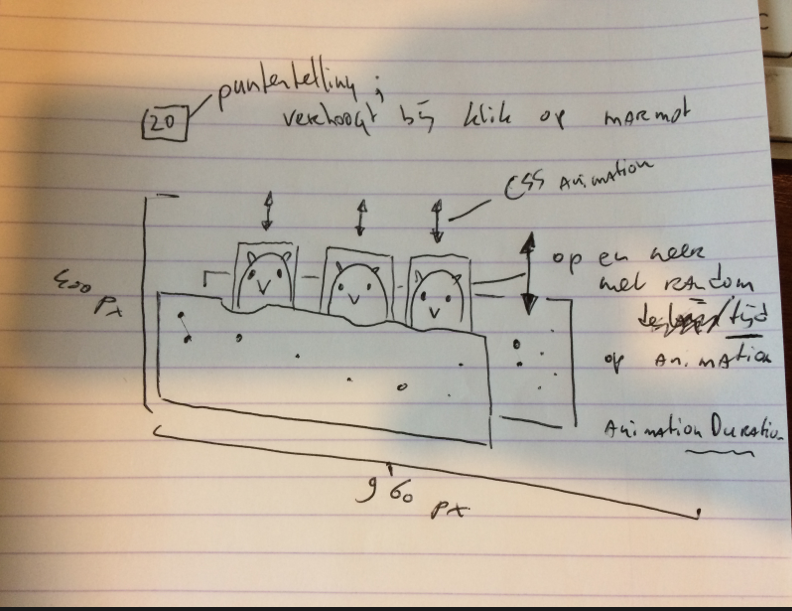 20
puntentelling;
verhoogt bij klik op marmot
CSS Animation
op en neer
met random
tijd
op animation
Animation Duration
400
px
960
px